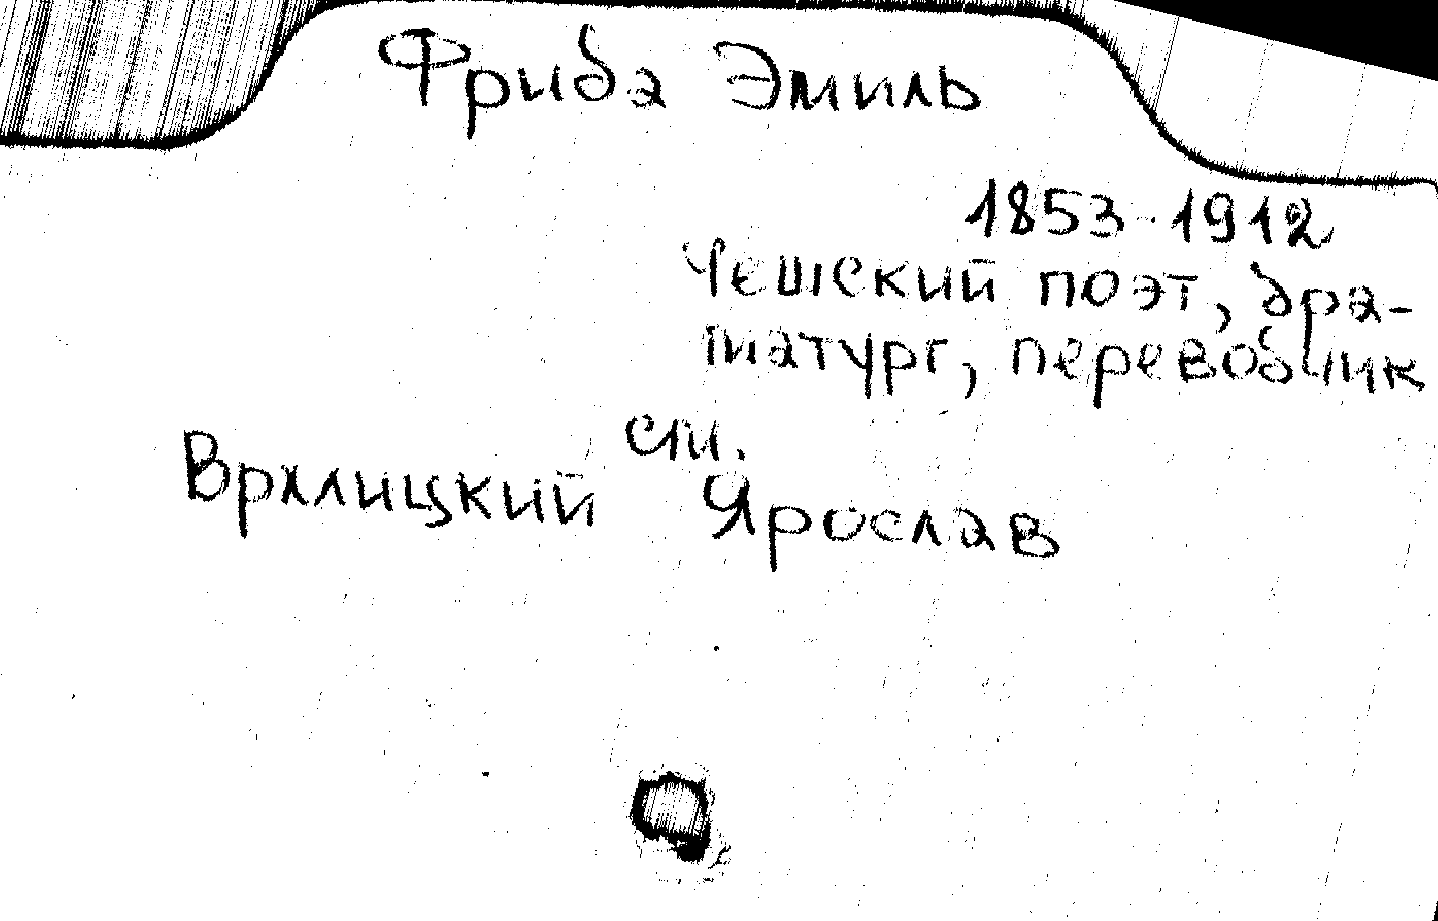 Фрида Эмиль
1853-1912
Чешский поэт, дра-
матург, переводчик
см.
Врхлицкий Ярослав